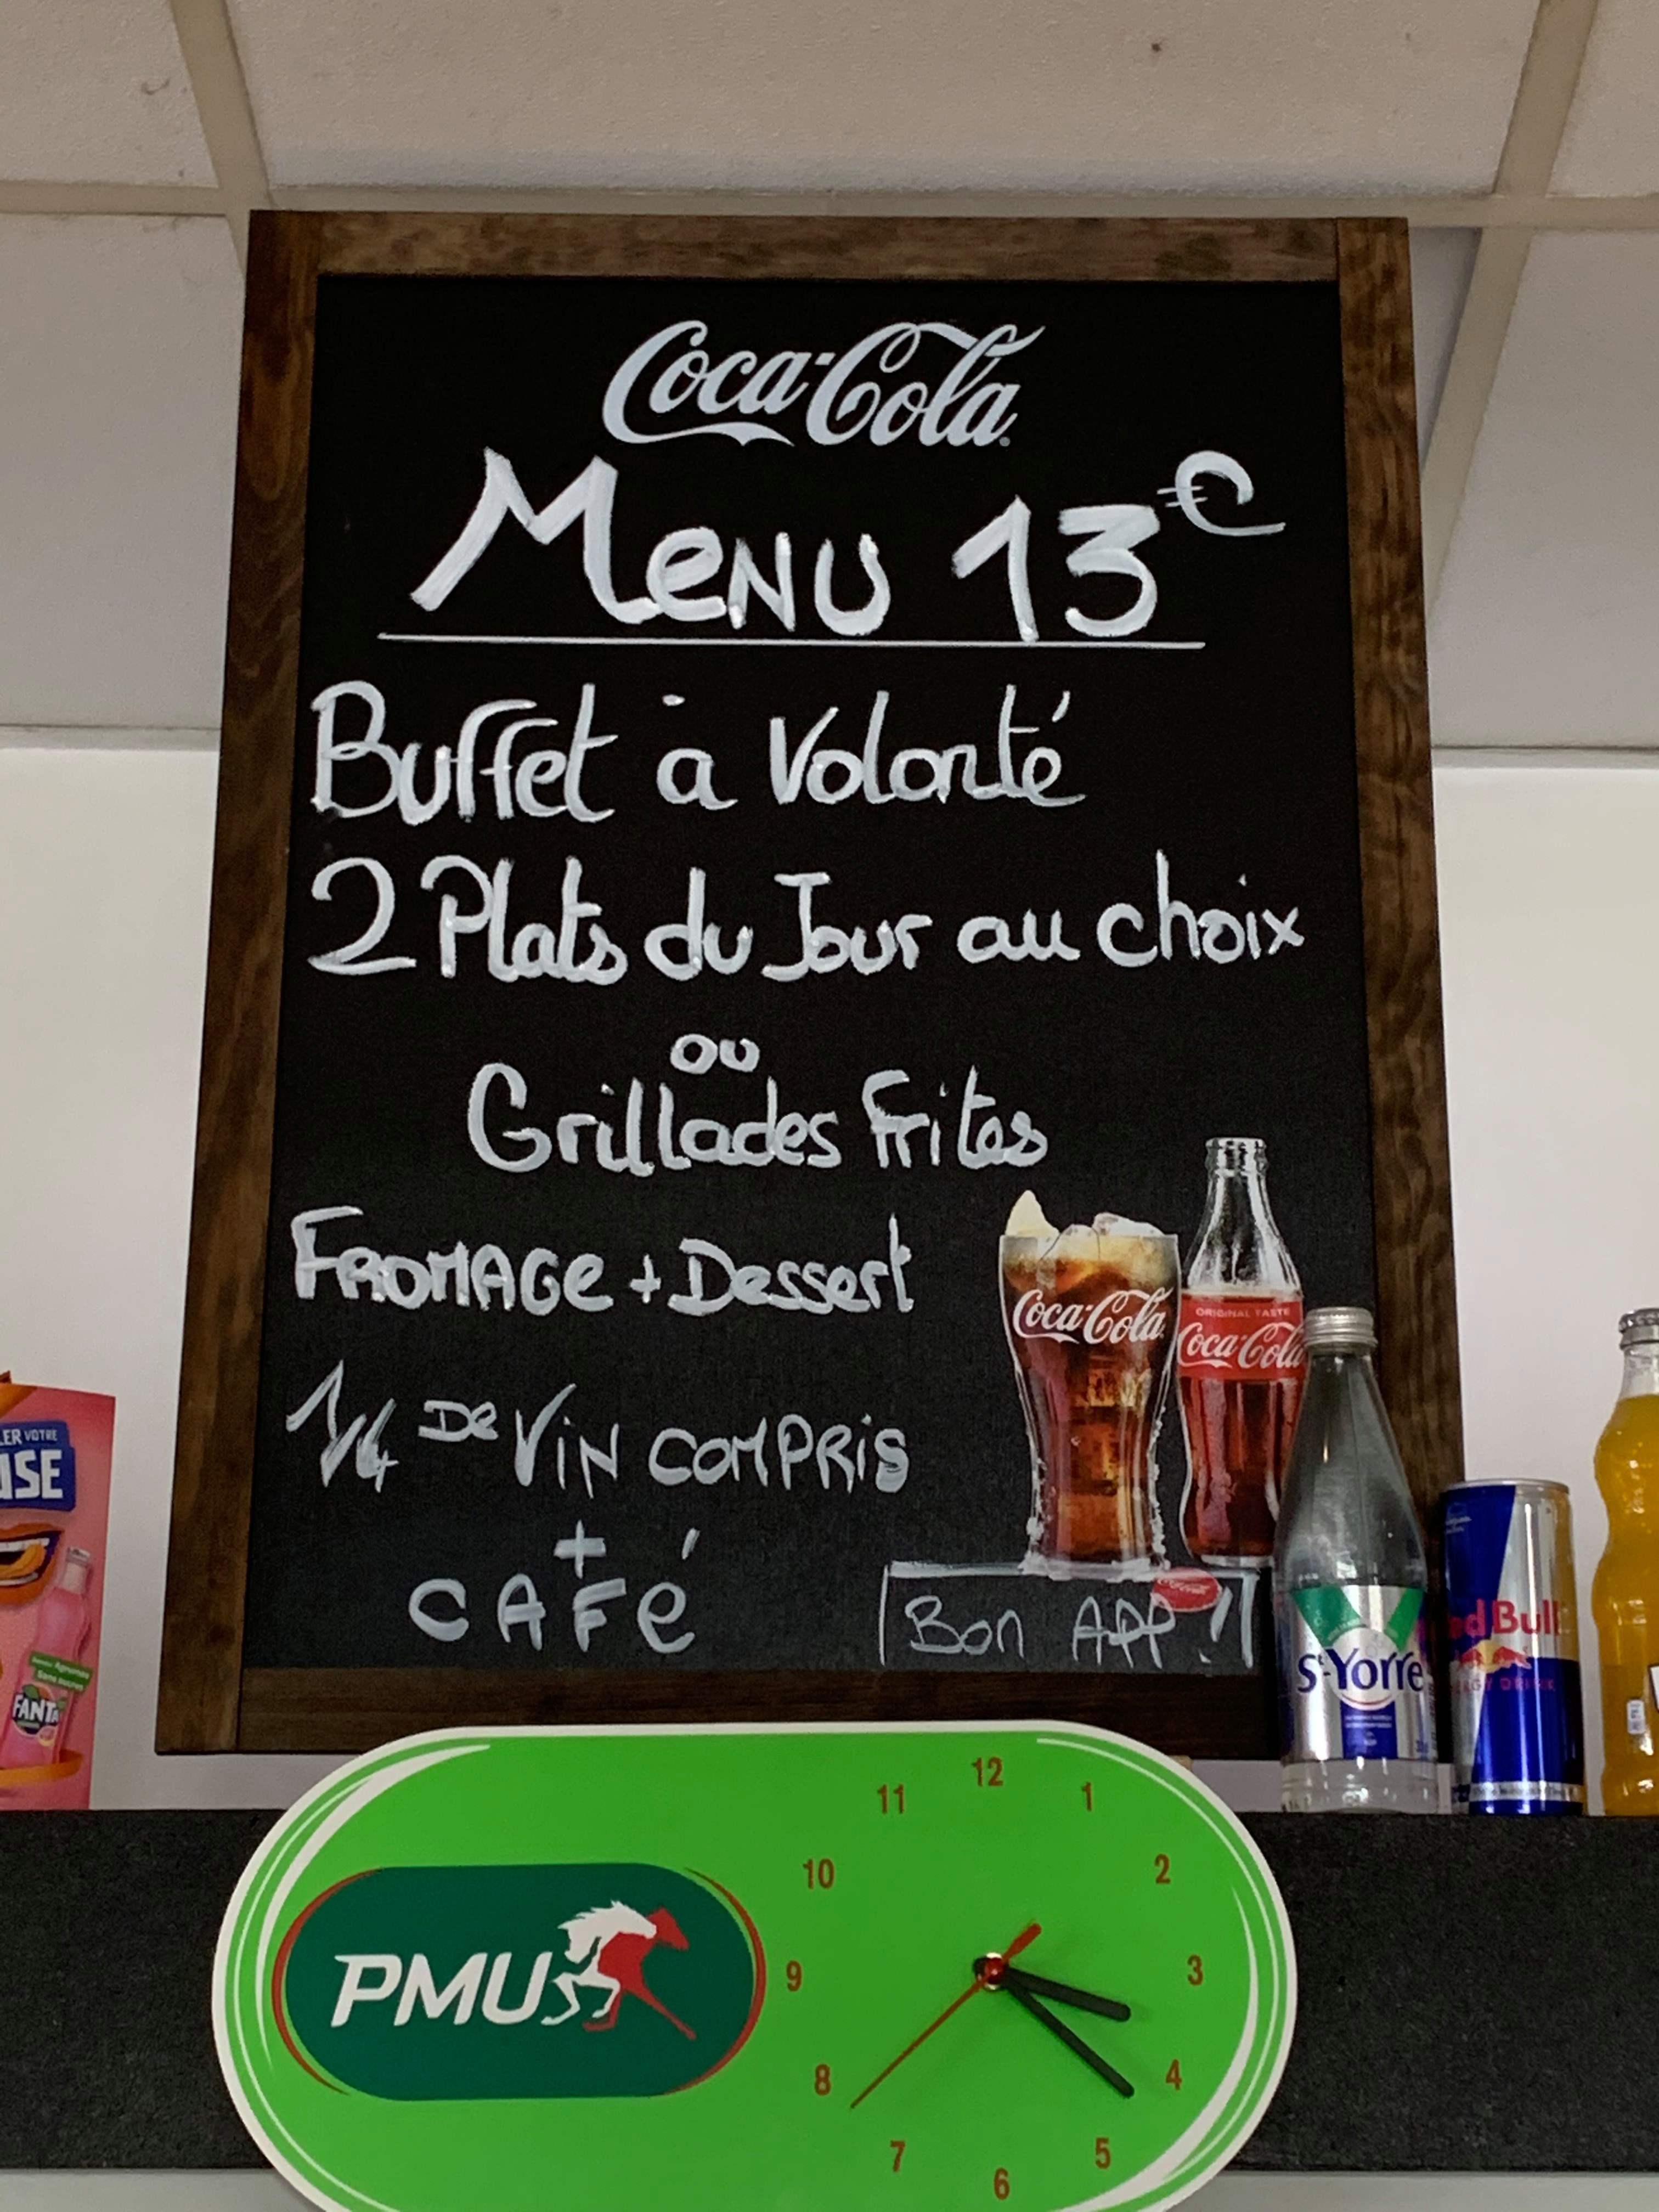 Coca-Cola
Menu 13€
Buffet à Volonté
2 Plats du Jour au choix
ou
Grillades frites
FROMAGE + Dessert
1/4 De ViN COMPRiS
+
CAFé
Bon APP !!
Coca-Cola
ORIGINAL TASTE
Coca-Cola
St-Yorre
Red Bull
ENERGY DRINK
LER VOTRE
USE
Sans sucres
FANTA
PMU
12
1
2
3
4
5
6
7
8
9
10
11